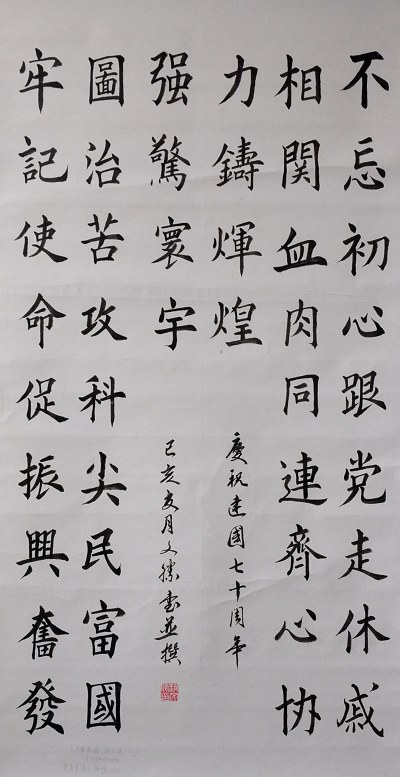 不忘初心跟党走休戚
相関血肉同連齊心协
力鑄煇煌
牢記使命促振興奮發
圖治苦攻科尖民富國
强驚寰宇
慶祝建國七十周年
己亥月文勝書並撰